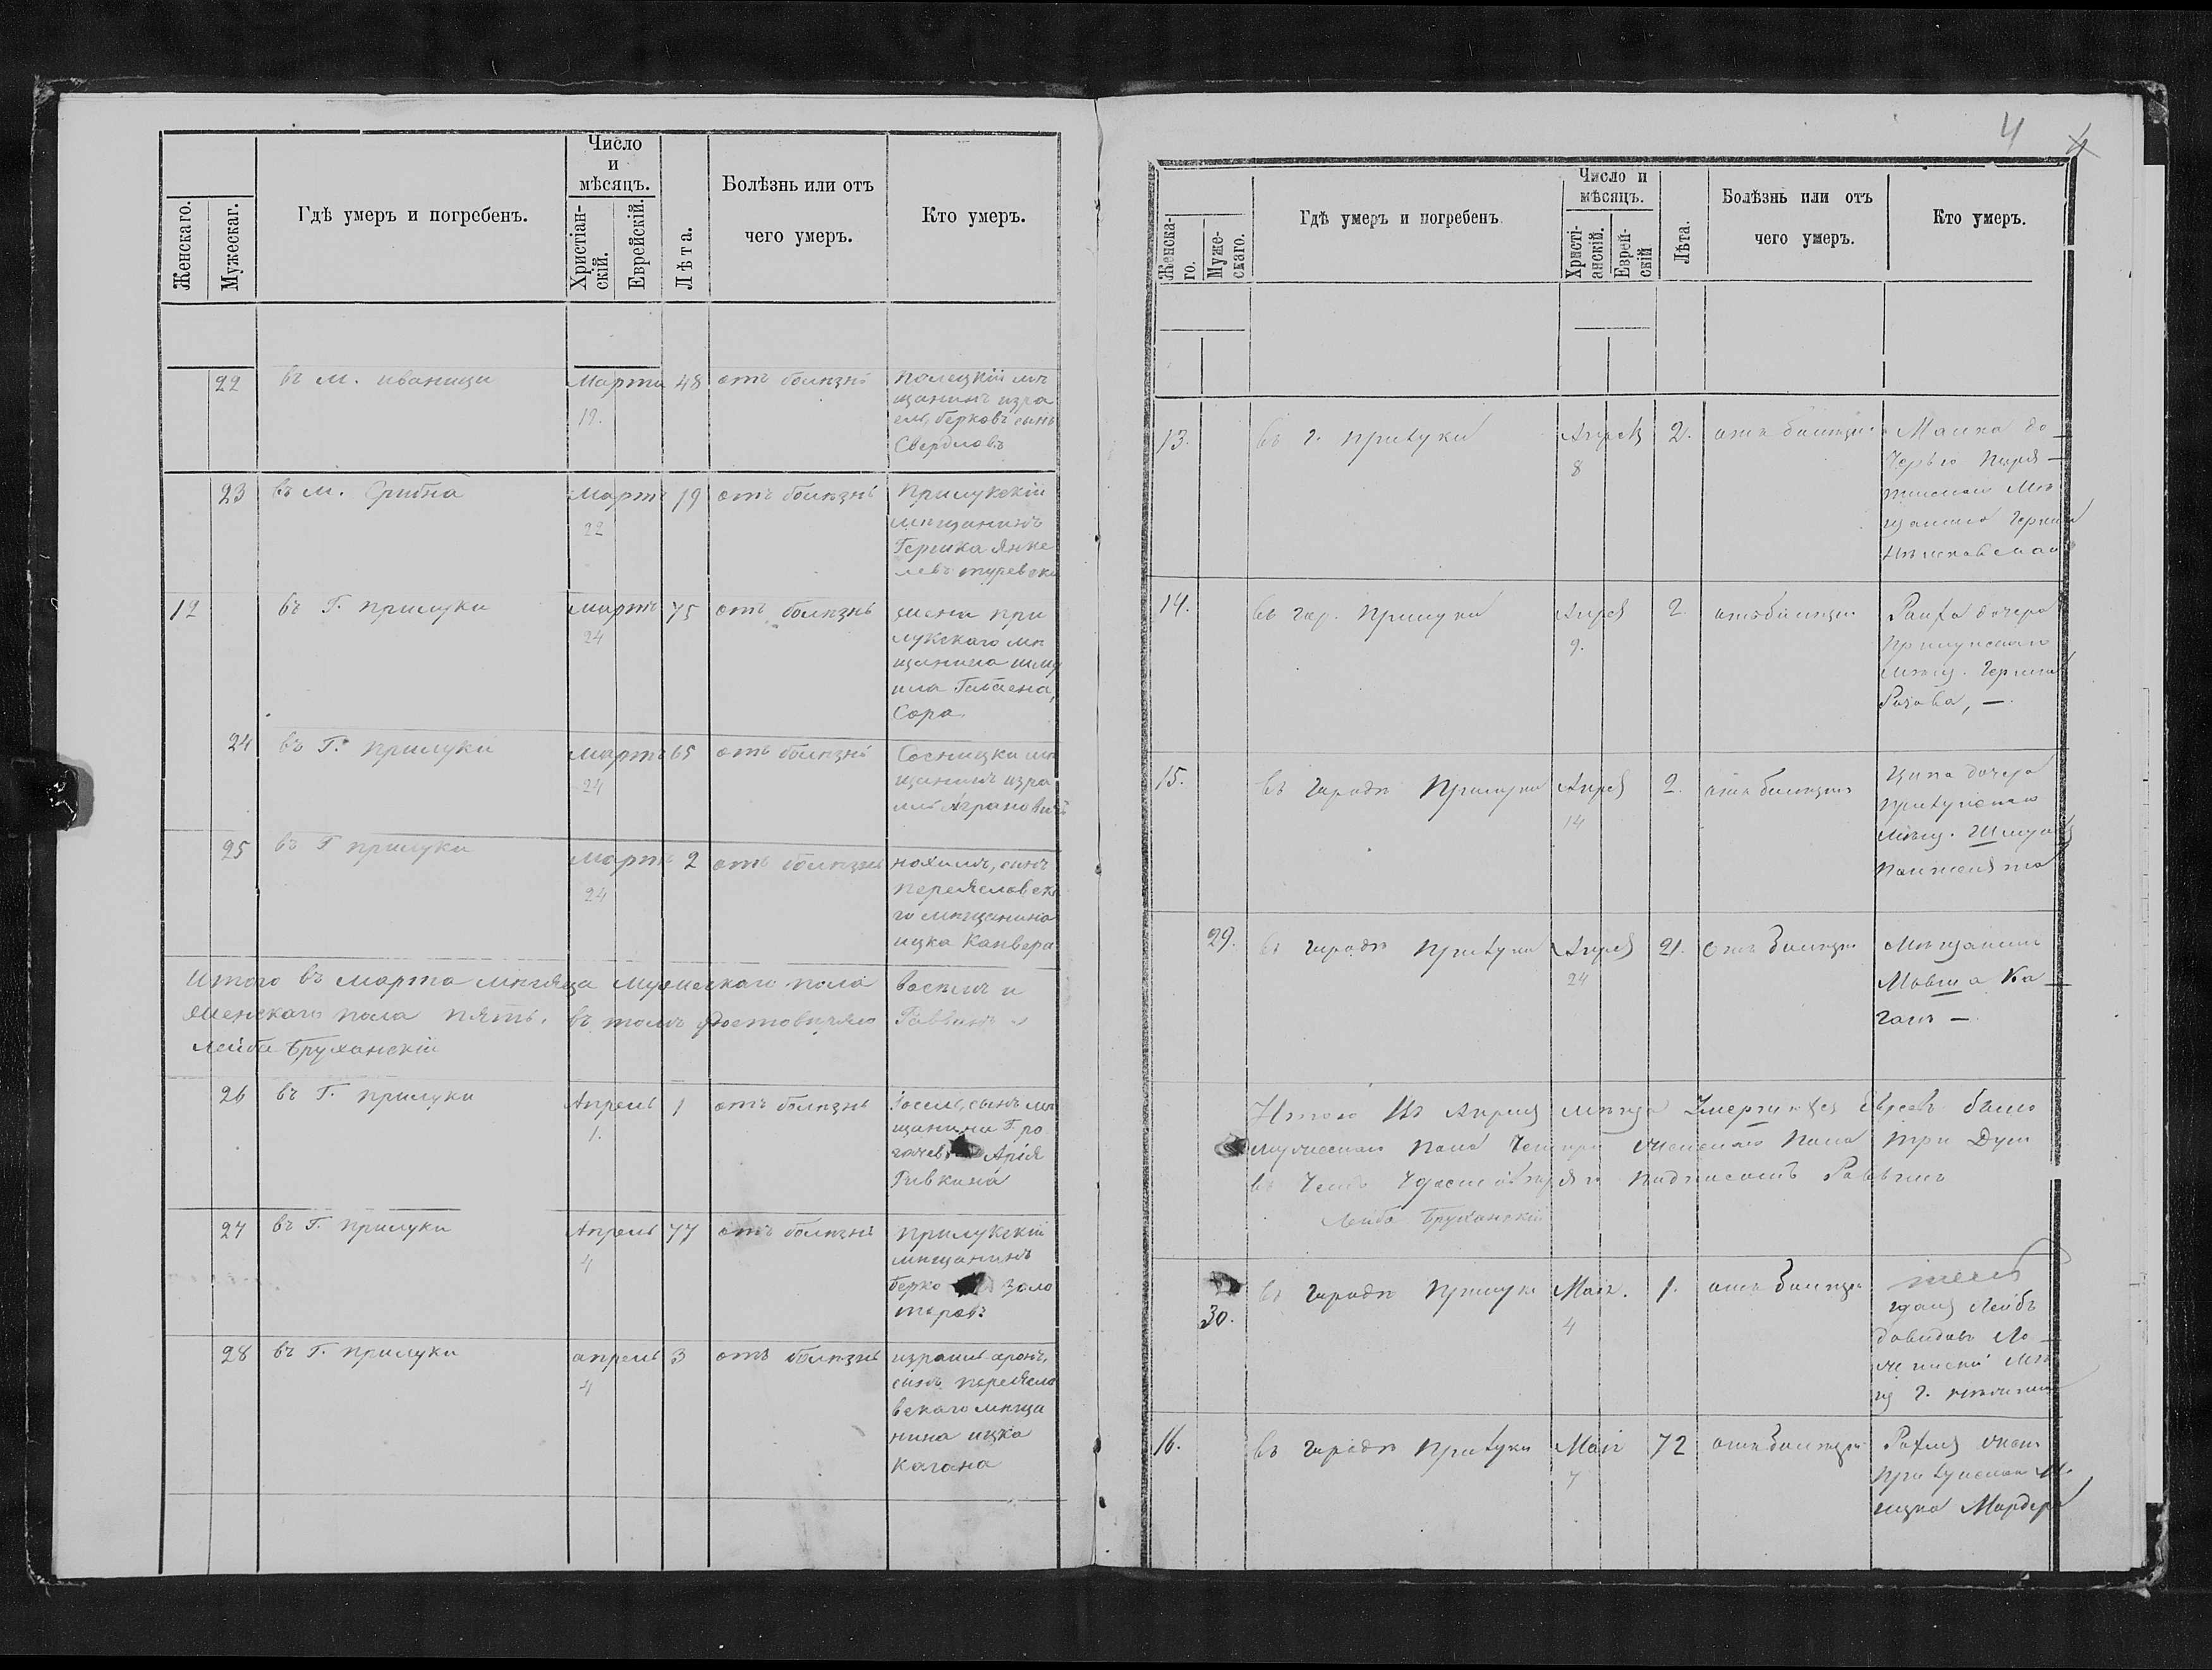 Женскаго.
Мужескаг.
Гдѣ умеръ и погребенъ.
Число
и
мѣсяцъ.
Христіан-
скій.
Еврейскій.
Лѣта.
Болѣзнь или отъ
чего умеръ.
Кто умеръ.
22 въ м. иваници Марта 48 отъ болѣзнѣ
17.
мѣ
щанинъ изра
ель, берковъ сынъ
Свердловъ
23 въ м. Срибна Мартъ 19 отъ болѣзнѣ Прилукскій
22 мѣщанинъ
Гершка Янке
левъ
12 въ Г. прилуки мартъ 75 отъ болѣзнѣ жена при
24 лукскаго мѣ
щанина шму
Сора
24 въ Г. прилуки мартъ 65 отъ болѣзнѣ Сосницки мѣ
24 щанинъ изра
иль Аграновичъ
25 въ Г прилуки мартъ 2 отъ болѣзнѣ нохимъ, сынъ
24 переяславска
го мѣщанина
ицка Канвера
Итого въ марта мѣсяца мужескаго пола восемь и
женскаго пола пять. въ томъ удостовѣряю Раввинъ
Лейба Бруханскій
26 въ Г. прилуки Апрель 1 отъ болѣзнѣ Іосель, сынъ мѣ
1. щанина Г. ро
Арія
Ривкина
27 въ Г. прилуки Апрель 77 отъ болѣзнѣ прилукскій
4 мѣщанинъ
берко золо
таревъ
28 въ Г. прилуки апрель 3 отъ болѣзнѣ израиль аронъ,
4 сынъ переясла
вскаго мѣща
нина ицка
кагана
4
Женска-
го.
Муже-
скаго.
Гдѣ умеръ и погребенъ
Число и
мѣсяцъ.
Христі-
анскій.
Еврей-
скій
Лѣта.
Болѣзнь или отъ
чего умеръ.
Кто умеръ.
13. въ г. прилуки Апрел 2. отъ болѣзни
8
14. въ гор. прилуки Апрел 2 отъ болѣзни дочера
9. прилускаго
мѣщ. Герш
15. въ городѣ прилуки Апрел 2. отъ болѣзни Ципа дочера
14 прилускаго
мѣщ.
29. въ городѣ прилуки Апрел 21. отъ болѣзни Мѣщанинъ
24 Мовша Ка
ганъ —
Итого въ Апреля мѣсяца умершихъ Евреевъ было
мужескаго пола четыри женскаго пола три души
въ чемъ удостовѣряю подписомъ Раввинъ
Лейба Бруханскій
30. въ городѣ прилуки Маія. 1. отъ болѣзни
4 Лейбъ
давидовъ
16. въ городѣ прилуки Маія 72 отъ болѣзни
7 прилускаго м.
ицка Мардера